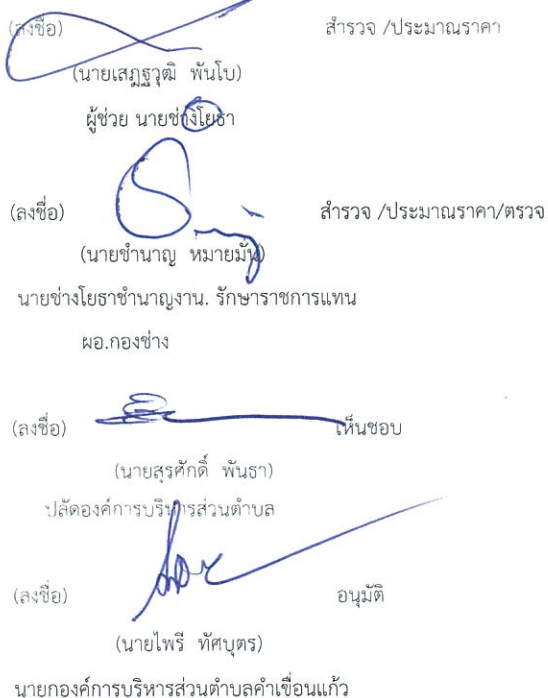 (ลงชื่อ) สำรวจ /ประมาณราคา
(นายเสฎฐวุฒิ พันโบ)
ผู้ช่วย นายช่างโยธา
(ลงชื่อ) สำรวจ /ประมาณราคา/ตรวจ
(นายชำนาญ หมายมั่น)
นายช่างโยธาชำนาญงาน. รักษาราชการแทน
ผอ.กองช่าง
(ลงชื่อ) เห็นชอบ
(นายสุรศักดิ์ พันธา)
ปลัดองค์การบริหารส่วนตำบล
(ลงชื่อ) อนุมัติ
(นายไพรี ทัศบุตร)
นายกองค์การบริหารส่วนตำบลคำเขื่อนแก้ว